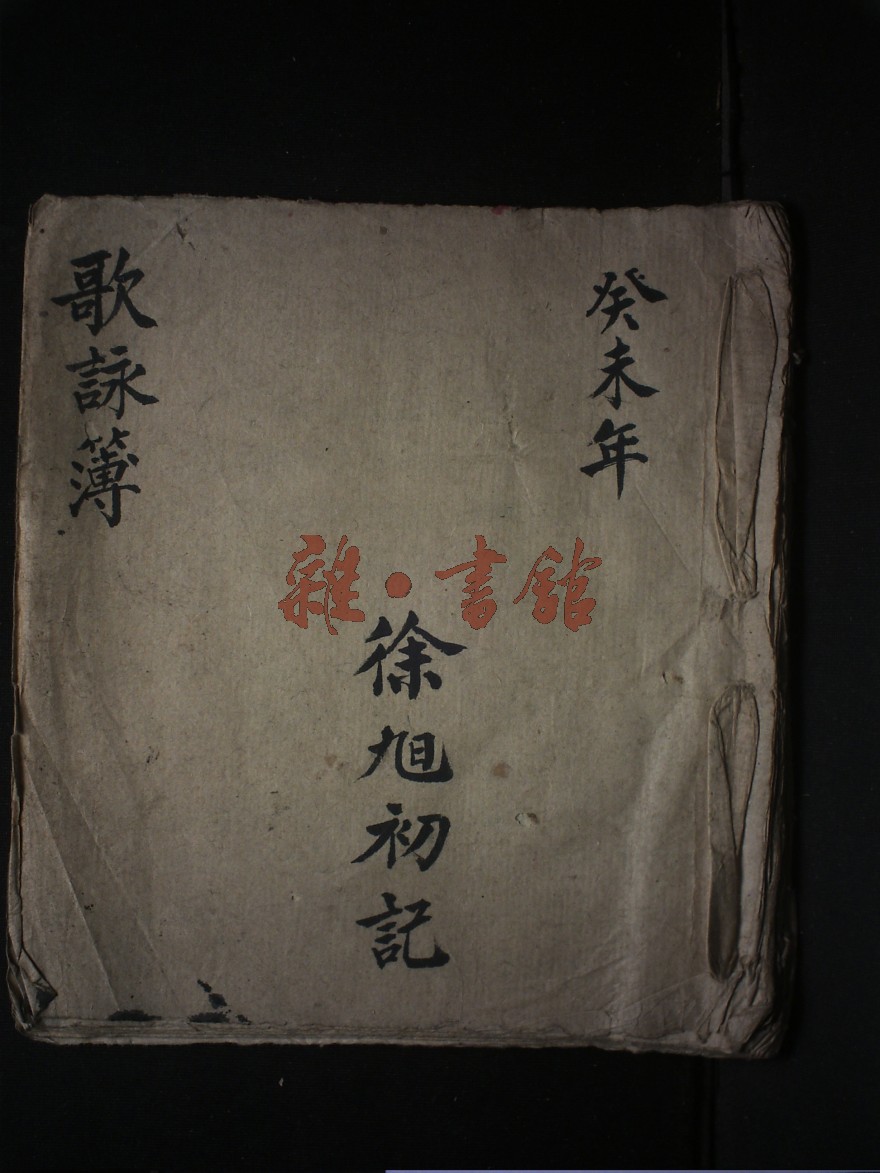 癸未年
徐旭初記
歌詠簿
雜·書館